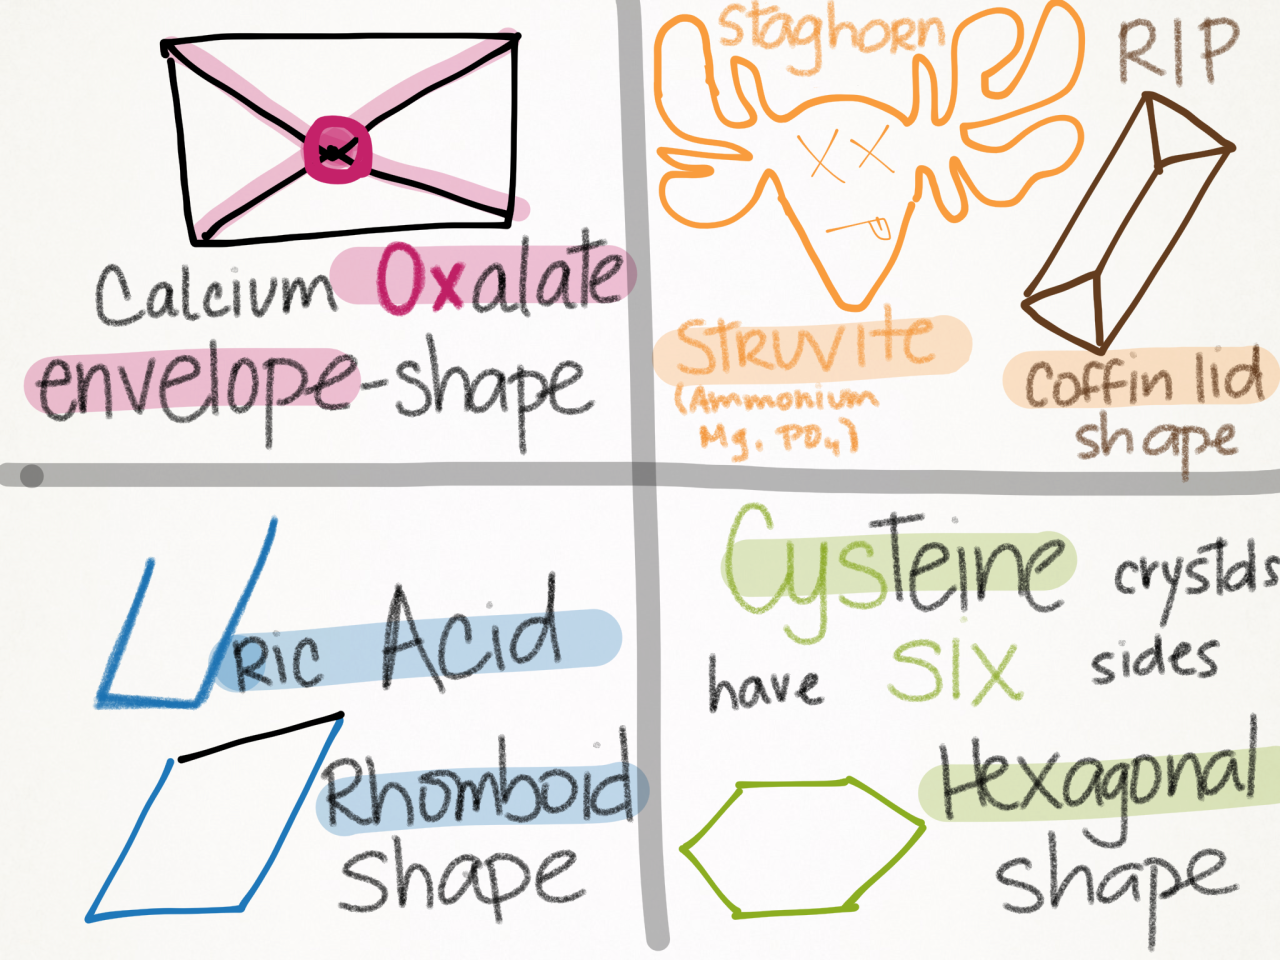 Calcium Oxalate
envelope-shape
staghorn
RIP
STRUVITE
(Ammonium
Mg. PO4)
Coffin lid
shape
Uric Acid
Rhomboid
shape
Cysteine crystals
have SIX sides
Hexagonal
shape